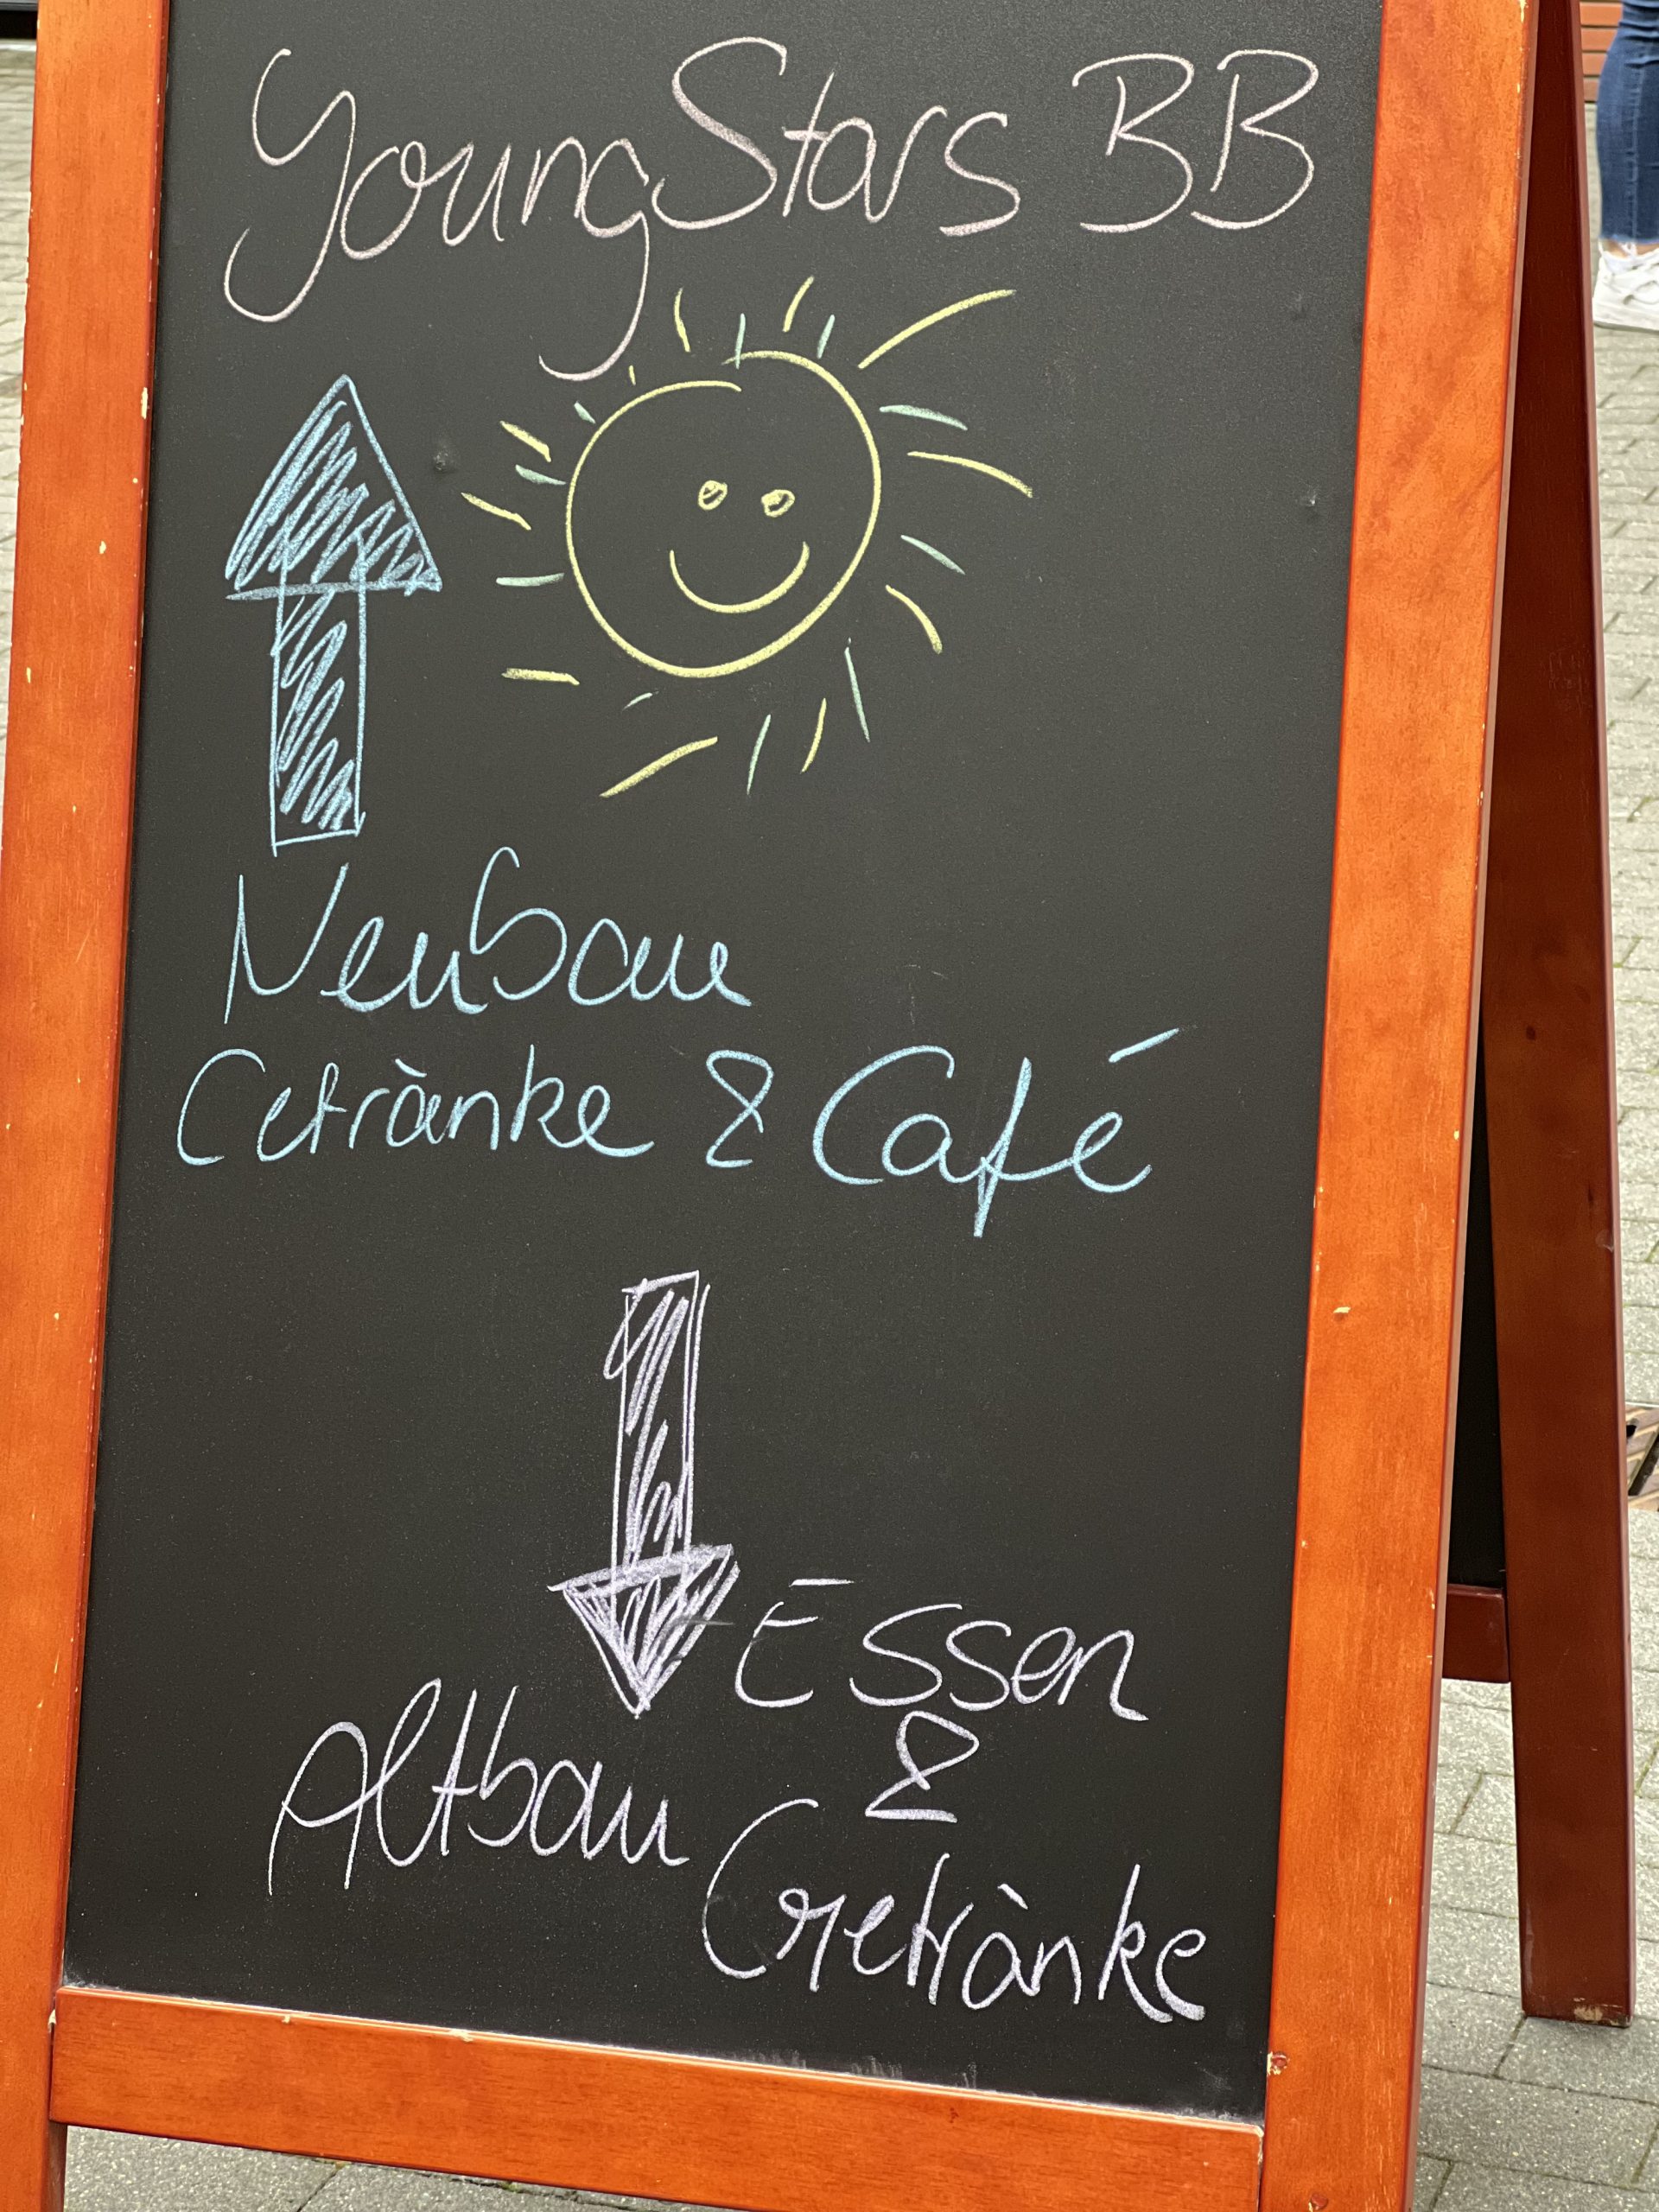 YoungStars BB
Neubau
Getränke & Café
Essen
&
Altbau
Getränke